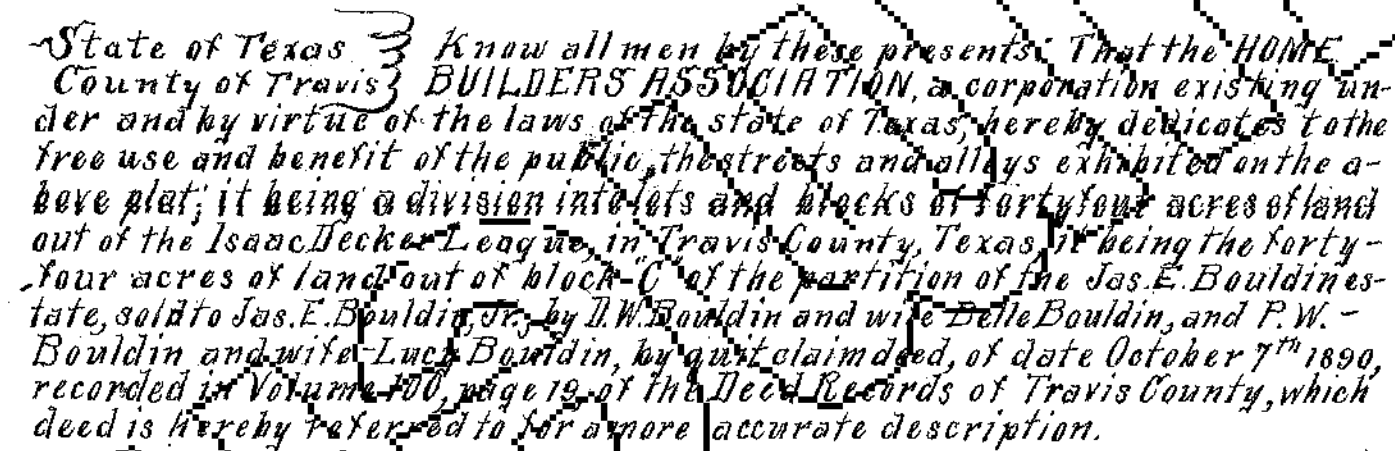 State of Texas } Know all men by these presents: That the HOME
County of Travis } BUILDERS ASSOCIATION, a corporation existing un-
der and by virtue of the laws of the state of Texas, hereby dedicates to the
free use and benefit of the public, the streets and alleys exhibited on the a-
bove plat; it being a division into lots and blocks of forty four acres of land
out of the Isaac Decker League, in Travis County, Texas, it being the forty-
four acres of land out of block "C" of the partition of the Jas. E. Bouldin es-
tate, sold to Jas. E. Bouldin, Jr., by D. W. Bouldin and wife Belle Bouldin, and P. W. -
Bouldin and wife Lucy Bouldin, by quit claim deed, of date October 7th 1890,
recorded in Volume 100, page 19, of the Deed Records of Travis County, which
deed is hereby referred to for a more accurate description.